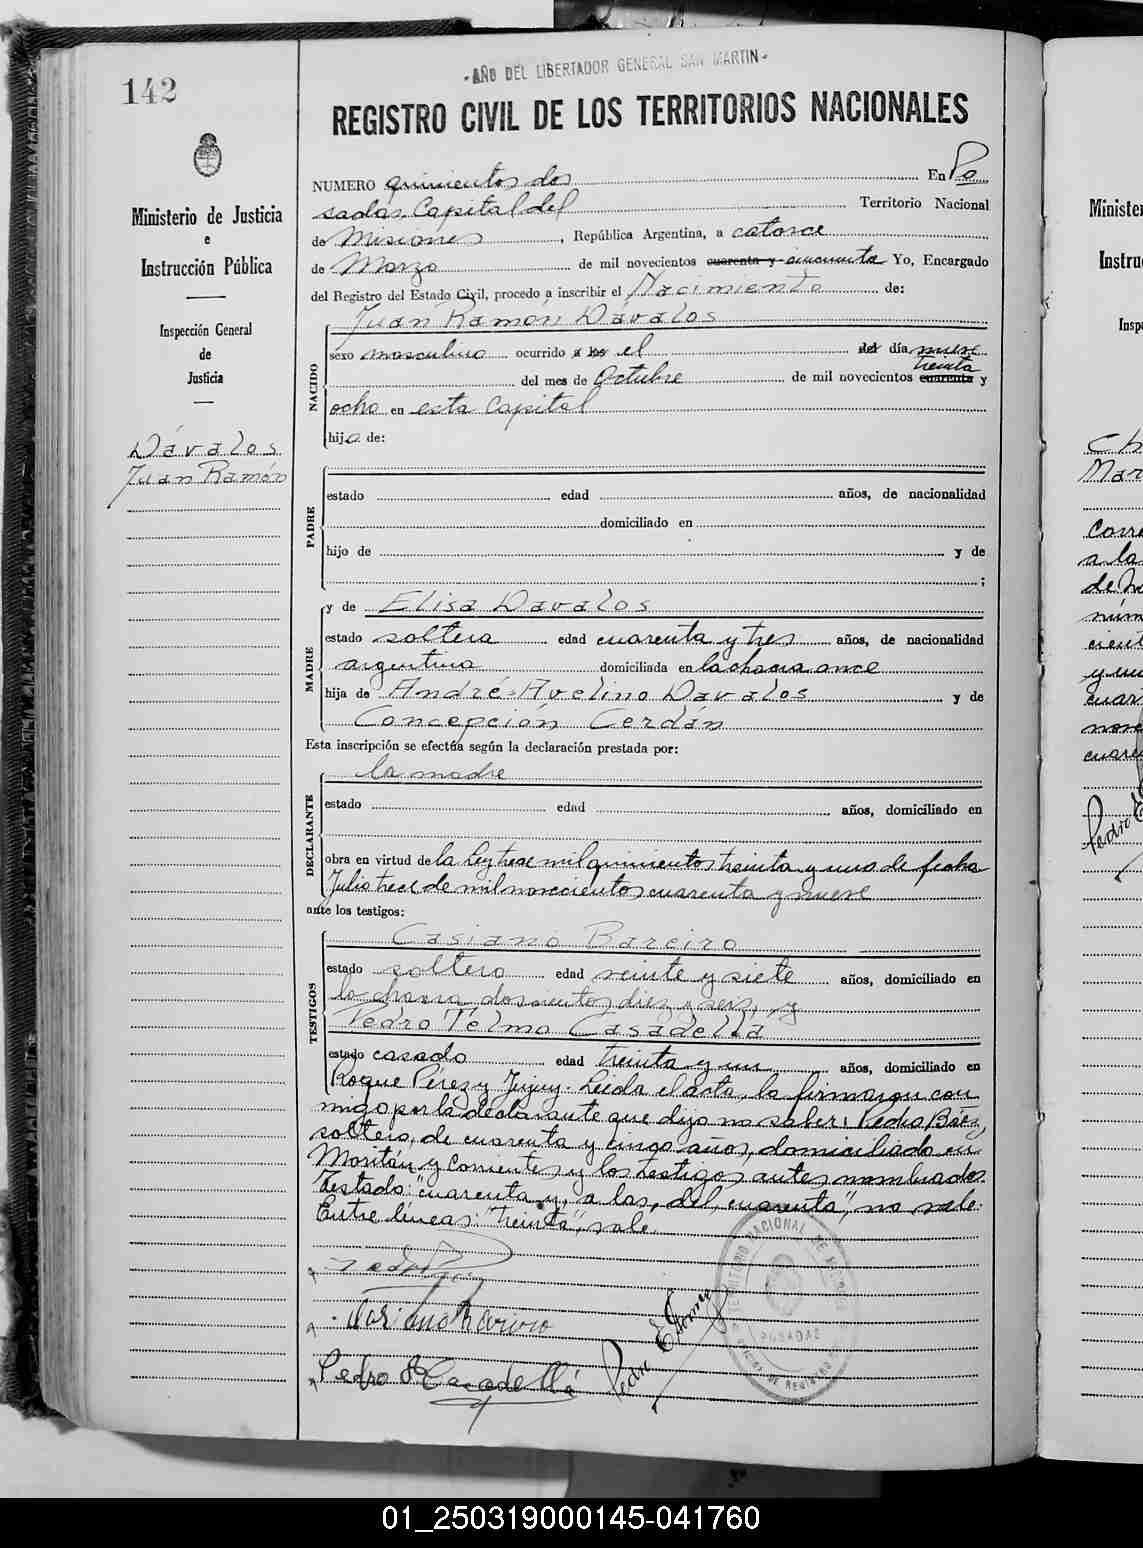 142
- AÑO DEL LIBERTADOR GENERAL SAN MARTIN -
REGISTRO CIVIL DE LOS TERRITORIOS NACIONALES
Ministerio de Justicia
e
Instrucción Pública
Inspección General
de
Justicia
Dávalos
Juan Ramón
NUMERO quinientos dos En Po
sadas, Capital del Territorio Nacional
de Misiones, República Argentina, a catorce
de Marzo de mil novecientos cuarenta y cincuenta Yo, Encargado
del Registro del Estado Civil, procedo a inscribir el Nacimiento de:
NACIDO
Juan Ramón Davalos
sexo masculino ocurrido a las el del día nueve
treinta
del mes de Octubre de mil novecientos cuarenta y
ocho en esta Capital
hijo de:
PADRE
estado edad años, de nacionalidad
domiciliado en
hijo de y de
;
MADRE
y de Elisa Davalos
estado soltera edad cuarenta y tres años, de nacionalidad
argentina domiciliada en la chacra once
hija de André Avelino Davalos y de
Concepción Cerdán
Esta inscripción se efectúa según la declaración prestada por:
DECLARANTE
la madre
estado edad años, domiciliado en
obra en virtud de la Ley trece mil quinientos treinta y uno de fecha
Julio trece de mil novecientos cuarenta y nueve
ante los testigos:
TESTIGOS
Casiano Bareiro
estado soltero edad veinte y siete años, domiciliado en
la chacra doscientos diez y seis, y
Pedro Telmo Casadella
estado casado edad treinta y un años, domiciliado en
Roque Pérez y Jujuy. Leída el acta, la firmaron con
migo por la declarante que dijo no saber: Pedro Báez,
soltero, de cuarenta y cinco años, domiciliado en
y Corrientes y los testigos antes nombrados.
Testado: "cuarenta y, a las, del, cuarenta", no vale.
Entre líneas: "treinta", vale.
Pedro
Pedro Casadellá
Pedro
POSADAS
Ministe
Instru
Insp
Mar
Corre
a la
de
núm
cient
y un
cuar
nove
cuare
Pedro E
01_250319000145-041760